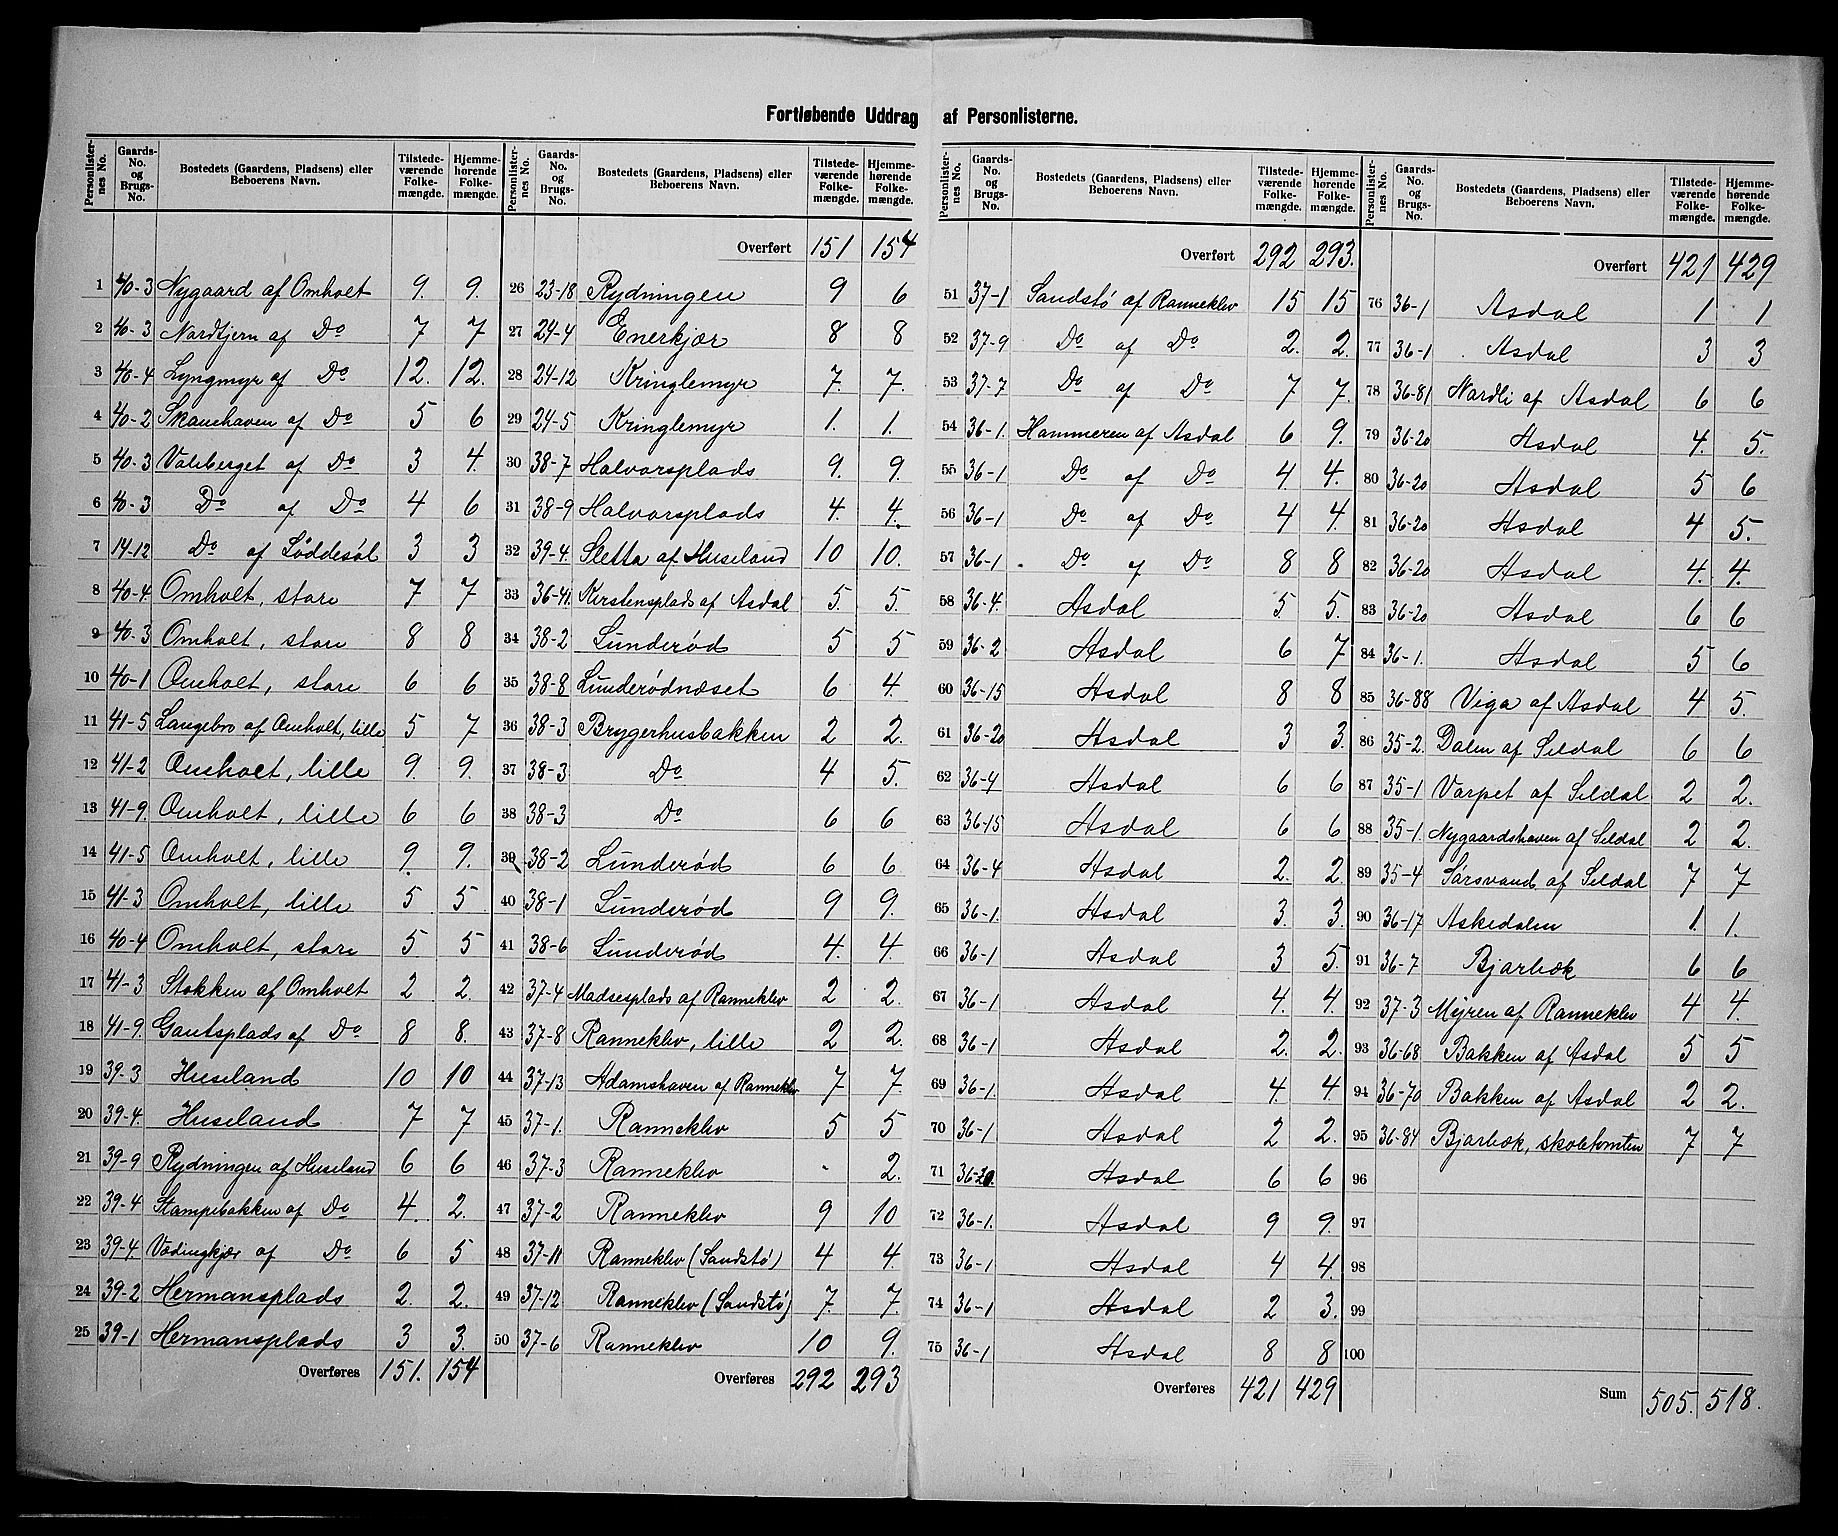 Fortløbende Uddrag af Personlisterne.
Personlisternes No. Gaards-No. og Brugs-No. Bostedets (Gaardens, Pladsens) eller Beboerens Navn. Tilstedeværende Folkemængde. Hjemmehørende Folkemængde.
1 40-3 Nygaard af Omholt 9. 9.
2 40-3 Nordtjern af Do 7 7
3 40-4 Lyngmyr af Do 12. 12.
4 40-2 Skauehaven af Do 5 6
5 40-3 Valeberget af Do 3 4.
6 40-3 Do af Do 4 6
7 14-12 Do af Løddesøl 3 3
8 40-4. Omholt, store 7 7
9 40-3 Omholt, store 8 8
10 40-1 Omholt, store 6 6
11 41-5 Langebro af Omholt, lille 5 7
12 41-2 Omholt, lille 9. 9.
13 41-9. Omholt, lille 6 6
14 41-5 Omholt, lille 9. 9.
15 41-3 Omholt, lille 5 5
16 40-4 Omholt, store 5 5
17 41-3 Stokken af Omholt 2 2
18 41-9. Gautsplads af Do 8 8.
19 39-3 Huseland 10 10
20 39-4. Huseland 7 7
21 39-9 Rydningen af Huseland 6 6
22 39-4 Stampebakken af Do 4. 2.
23 39-4. Vadingkjær af Do 6 5
24 39-2 Hermansplads 2. 2.
25 39-1 Hermansplads 3 3.
Overføres 151. 154
Personlisternes No. Gaards-No. og Brugs-No. Bostedets (Gaardens, Pladsens) eller Beboerens Navn. Tilstedeværende Folkemængde. Hjemmehørende Folkemængde.
Overført 151 154
26 23-18 Rydningen 9 6
27 24-4 Enerkjær 8 8
28 24-12 Kringlemyr 7. 7.
29 24-5 Kringlemyr 1. 1.
30 38-7 Halvorsplads 9. 9.
31 38-9 Halvorsplads 4. 4.
32 39-4. Sletta af Huseland 10 10.
33 36-41. Kerstensplads af Asdal 5. 5.
34 38-2 Lunderød 5 5
35 38-8 Lunderødnæset 6 4.
36 38-3 Bryggerhusbakken 2 2.
37 38-3 Do 4 5.
38 38-3 Do 6 6
39 38-2 Lunderød 6 6
40 38-1 Lunderød 9 9.
41 38-6 Lunderød 4. 4.
42 37-4 Madsesplads af Ranneklev 2 2.
43 37-8 Ranneklev, lille 2 2.
44 37-13 Adamshaven af Ranneklev 7 7.
45 37-1. Ranneklev 5 5
46 37-3 Ranneklev - 2.
47 37-2 Ranneklev 9 10
48 37-11 Ranneklev (Sandstø) 4 4.
49 37-12 Ranneklev (Sandstø) 7. 7.
50 37-6 Ranneklev 10 9.
Overføres 292 293
Personlisternes No. Gaards-No. og Brugs-No. Bostedets (Gaardens, Pladsens) eller Beboerens Navn. Tilstedeværende Folkemængde. Hjemmehørende Folkemængde.
Overført 292 293.
51 37-1 Sandstø af Ranneklev 15 15
52 37-9 Do af Do 2. 2.
53 37-7 Do af Do 7 7.
54 36-1. Hammeren af Asdal 6 9.
55 36-1 Do af Do 4 4.
56 36-1 Do af Do 4 4.
57 36-1 Do af Do 8 8
58 36-4. Asdal 5 5.
59 36-2 Asdal 6 7
60 36-15 Asdal 8 8
61 36-20 Asdal 3 3.
62 36-4 Asdal 6 6
63 36-15 Asdal 6 6
64 36-4 Asdal 2. 2.
65 36-1. Asdal 3. 3.
66 36-1 Asdal 3 5.
67 36-1 Asdal 4. 4.
68 36-1 Asdal 2. 2.
69 36-1. Asdal 4. 4.
70 36-1 Asdal 2 2.
71 36-20. Asdal 6 6
72 36-1. Asdal 9 9.
73 36-1 Asdal 4 4.
74 36-1 Asdal 2 3.
75 36-1 Asdal 8 8
Overføres 421 429
Personlisternes No. Gaards-No. og Brugs-No. Bostedets (Gaardens, Pladsens) eller Beboerens Navn. Tilstedeværende Folkemængde. Hjemmehørende Folkemængde.
Overført 421 429
76 36-1 Asdal 1 1
77 36-1 Asdal 3 3
78 36-81 Nordli af Asdal 6 6
79 36-20 Asdal 4. 5.
80 36-20 Asdal 5 6
81 36-20 Asdal 4 5.
82 36-20 Asdal 4. 4.
83 36-20 Asdal 6 6
84 36-1. Asdal 5 6
85 36-88 Viga af Asdal 4 5.
86 35-2. Dalen af Seldal 6 6
87 35-1 Varpet af Seldal 2 2.
88 35-1. Nygaardshaven af Seldal 2 2.
89 35-4 Sørsvand af Seldal 7 7
90 36-17 Askedalen 1. 1.
91 36-7 Bjørbæk 6 6
92 37-3 Mejren af Ranneklev 4 4.
93 36-68 Bakken af Asdal 5 5
94 36-70 Bakken af Asdal 2 2.
95 36-84 Bjørbæk, skoletomten 7 7
96
97
98
99
100
Sum 505. 518.